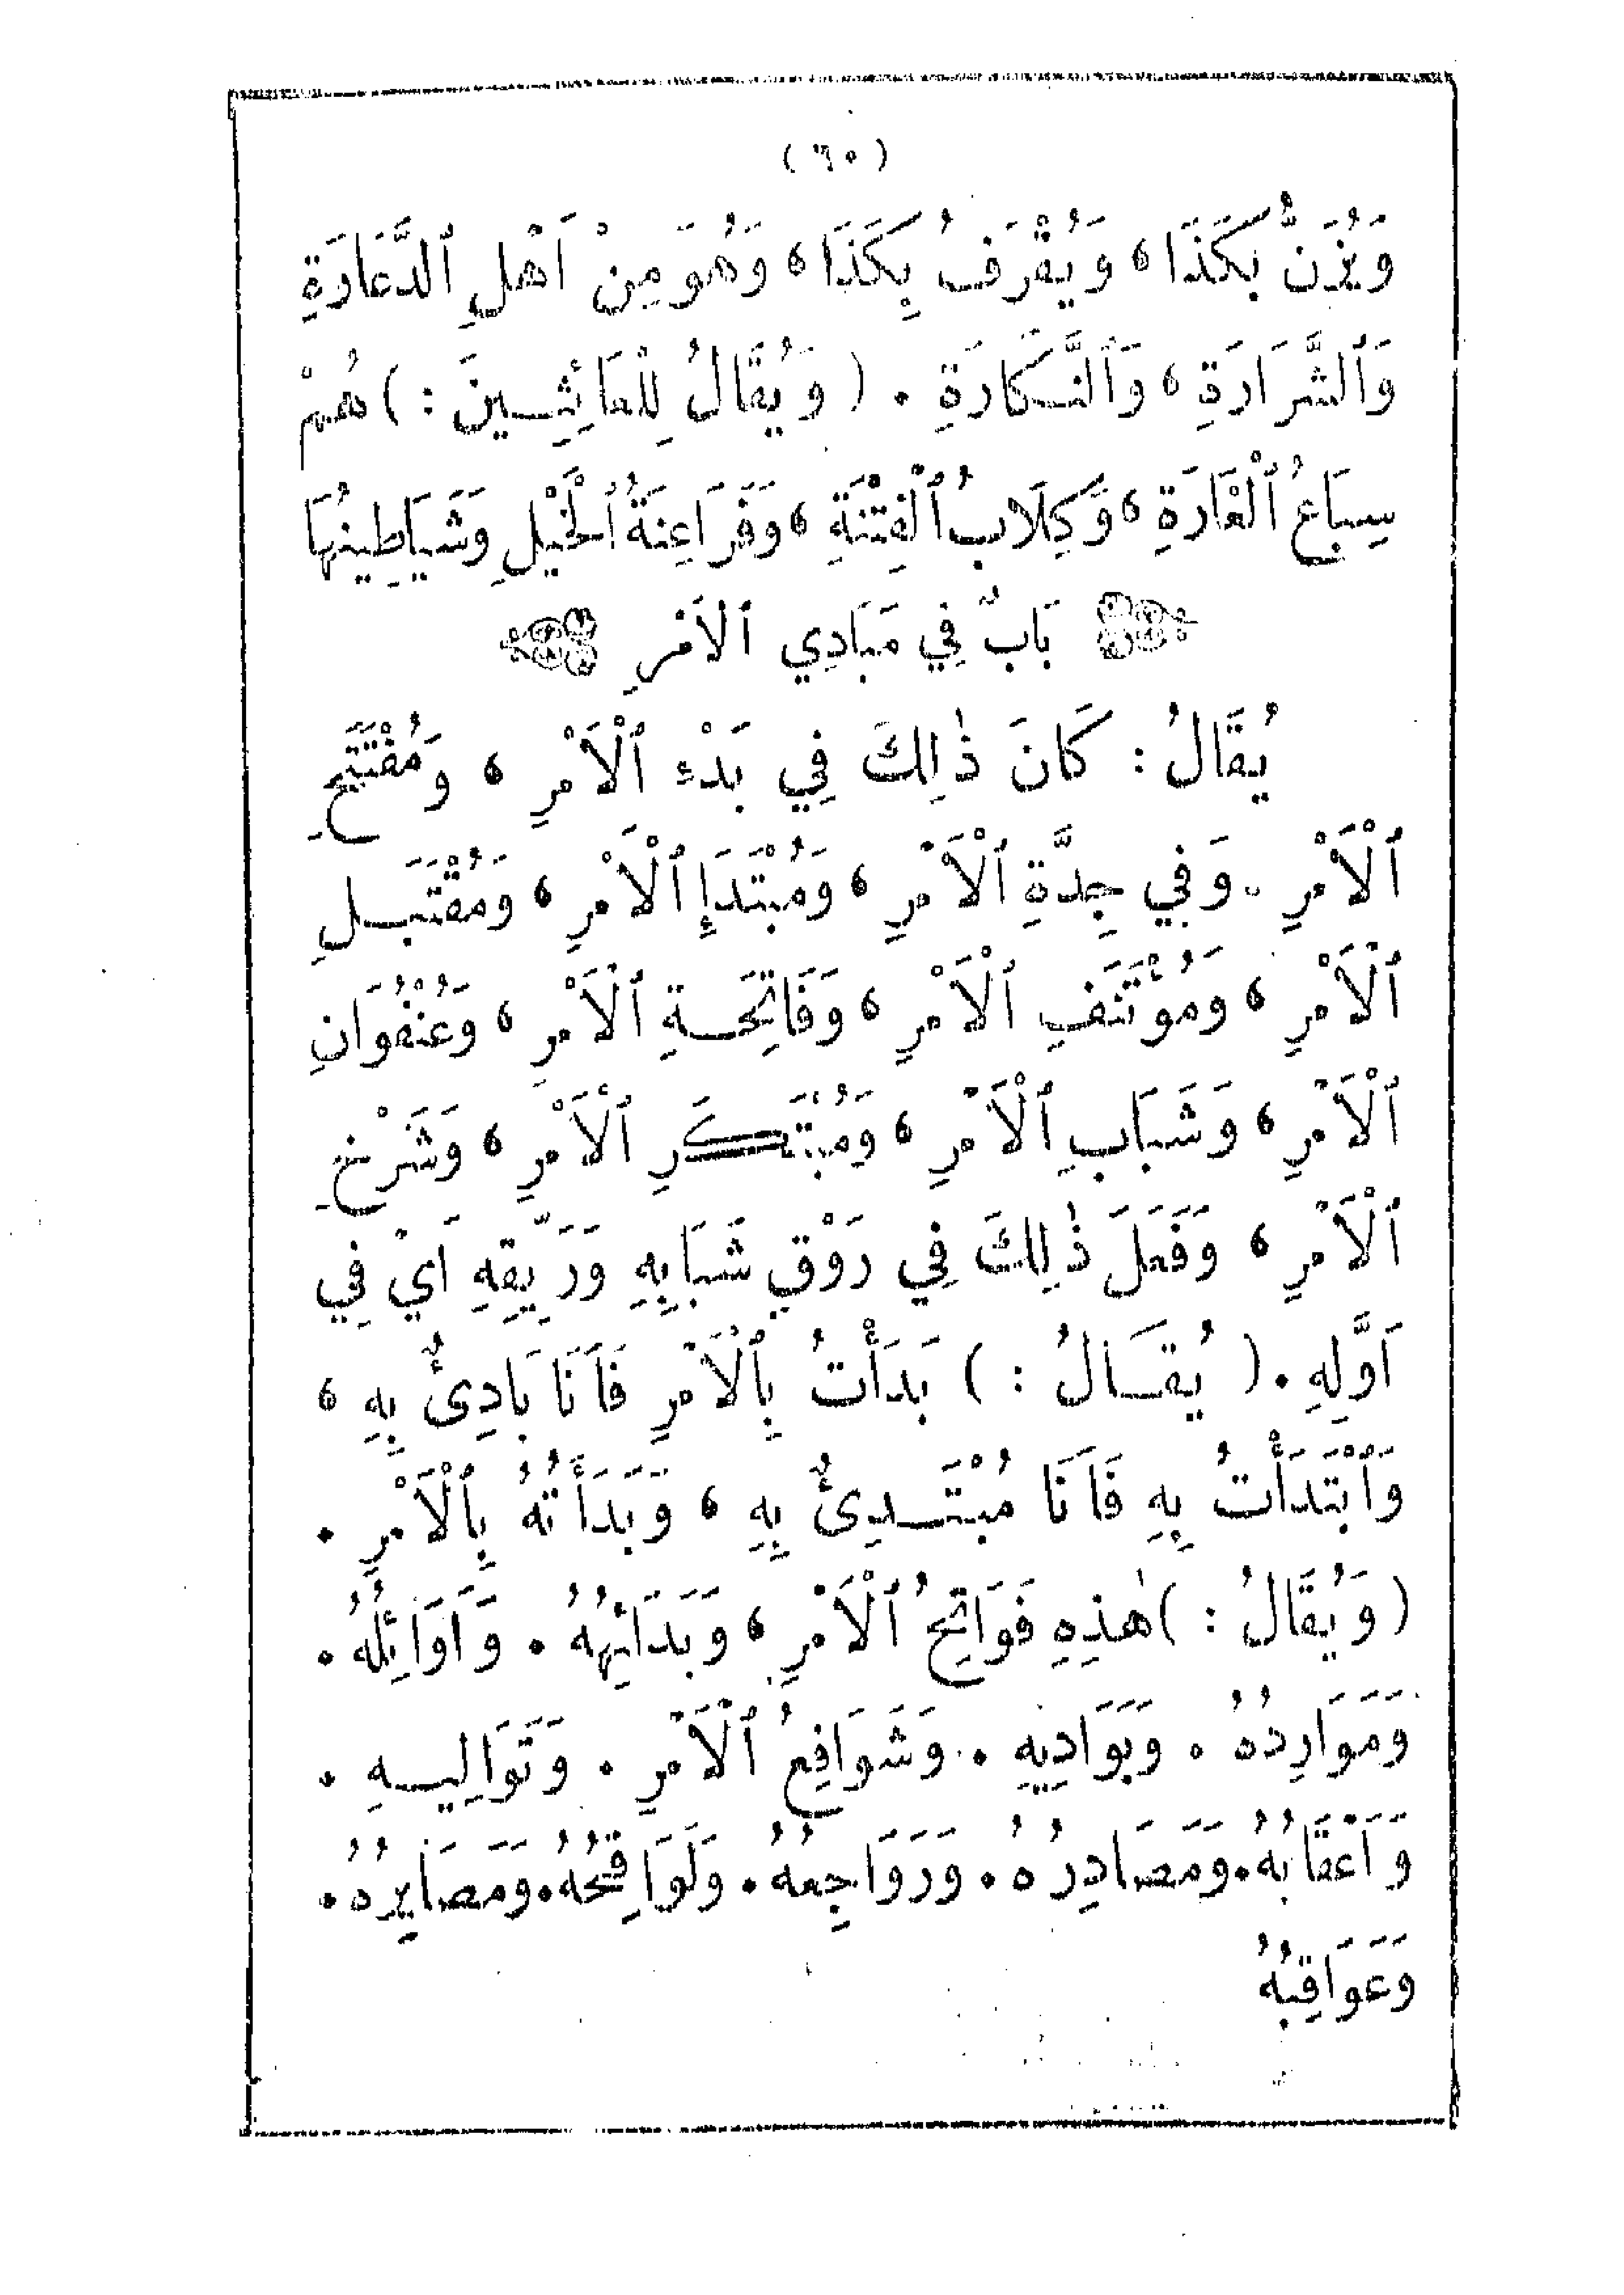 (٦٠)
وَيُزَنُّ بِكَذَا، وَيُقْرَفُ بِكَذَا، وَهُوَ مِنْ اَهْلِ ٱلدَّعَارَةِ
وَٱلشَّرَارَةِ، وَٱلنَّكَارَةِ. (وَيُقَالُ لِلْعَائِثِينَ:) هُمْ
سِبَاعُ ٱلْغَارَةِ، وَكِلَابُ ٱلْفِتْنَةِ، وَفَرَاعِنَةُ ٱلْخَيْلِ وَشَيَاطِينُهَا
بَابٌ فِي مَبَادِي ٱلاَمْرِ
يُقَالُ: كَانَ ذٰلِكَ فِي بَدْءِ ٱلْاَمْرِ، وَمُفْتَتَحِ
ٱلْاَمْرِ. وَفِي جِدَّةِ ٱلْاَمْرِ، وَمُبْتَدَإِ ٱلْاَمْرِ، وَمُقْتَبَلِ
ٱلْاَمْرِ، وَمُؤْتَنَفِ ٱلْاَمْرِ، وَفَاتِحَةِ ٱلْاَمْرِ، وَعُنْفُوَانِ
ٱلْاَمْرِ، وَشَبَابِ ٱلْاَمْرِ، وَمُبْتَكَرِ ٱلْاَمْرِ، وَشَرْخِ
ٱلْاَمْرِ، وَفَعَلَ ذٰلِكَ فِي رَوْقِ شَبَابِهِ وَرَيِّقِهِ اَيْ فِي
اَوَّلِهِ. (يُقَالُ:) بَدَأْتُ بِٱلْاَمْرِ فَاَنَا بَادِئٌ بِهِ،
وَٱبْتَدَأْتُ بِهِ فَاَنَا مُبْتَدِئٌ بِهِ، وَبَدَأَتُهُ بِٱلْاَمْرِ.
(وَيُقَالُ:) هٰذِهِ فَوَاتِحُ ٱلْاَمْرِ، وَبَدَائِهُهُ. وَاَوَائِلُهُ.
وَمَوَارِدُهُ. وَبَوَادِيهِ. وَشَوَافِعُ ٱلْاَمْرِ. وَتَوَالِيهِ.
وَاَعْقَابُهُ. وَمَصَادِرُهُ. وَرَوَاجِعُهُ. وَلَوَاقِحُهُ. وَمَصَايِرُهُ.
وَعَوَاقِبُهُ